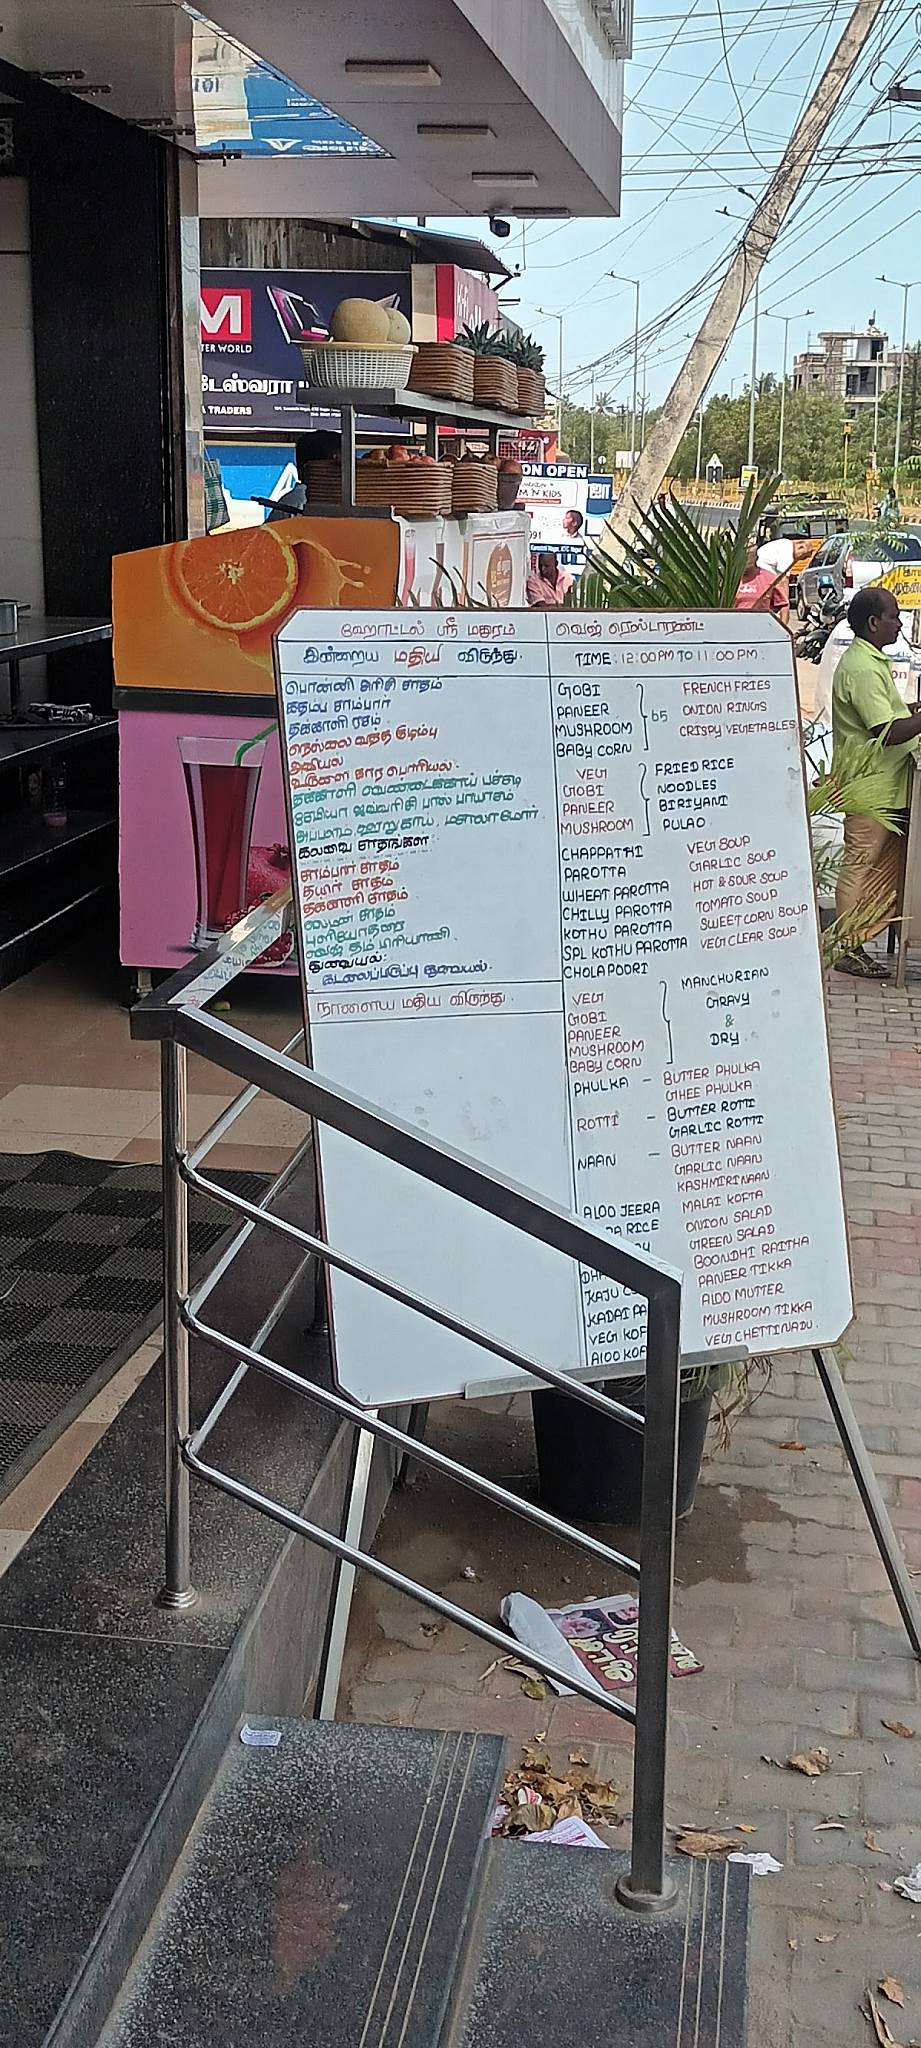 M
TER WORLD
டேஸ்வரா
A TRADERS
ON OPEN
M 'N KIDS
ஹோட்டல் ஸ்ரீ மகரம்
வெஜ் ரெஸ்டாரண்ட்
இன்றைய மதிய விருந்து.
TIME: 12:00PM TO 11:00PM.
பொன்னி அரிசி சாதம்
கதம்ப சாம்பார்
தக்காளி ரசம்
நெல்லை வத்த குழம்பு
அவியல்
உருளை கார பொரியல்.
தக்காளி வெண்டைக்காய் பச்சடி
சேமியா ஜவ்வரிசி பால் பாயாசம்
அப்பளம், ஊறுகாய், மசாலாமோர்.
கலவை சாதங்கள்:
சாம்பார் சாதம்
தயிர் சாதம்
தக்காளி சாதம்
லெமன் சாதம்
புளியோதரை
வெஜ் தம் பிரியாணி.
துவையல்:
கடலைப்பருப்பு துவையல்.
நாளைய மதிய விருந்து.
GOBI
PANEER
MUSHROOM
BABY CORN
65
FRENCH FRIES
ONION RINGS
CRISPY VEGETABLES
VEG
GOBI
PANEER
MUSHROOM
FRIED RICE
NOODLES
BIRIYANI
PULAO.
CHAPPATHI
PAROTTA
WHEAT PAROTTA
CHILLY PAROTTA
KOTHU PAROTTA
SPL KOTHU PAROTTA
CHOLA POORI
VEG SOUP
GARLIC SOUP
HOT & SOUR SOUP
TOMATO SOUP
SWEET CORN SOUP
VEG CLEAR SOUP
VEG
GOBI
PANEER
MUSHROOM
BABY CORN
MANCHURIAN
GRAVY
&
DRY.
PHULKA - BUTTER PHULKA
GHEE PHULKA
ROTTI - BUTTER ROTTI
GARLIC ROTTI
NAAN - BUTTER NAAN
GARLIC NAAN
KASHMIRI NAAN
ALOO JEERA
RA RICE
DHA
KAJU C
KADAI PA
VEG KOF
ALOO KOF
MALAI KOFTA
ONION SALAD
GREEN SALAD
BOONDHI RAITHA
PANEER TIKKA
ALOO MUTTER
MUSHROOM TIKKA
VEG CHETTINADU.